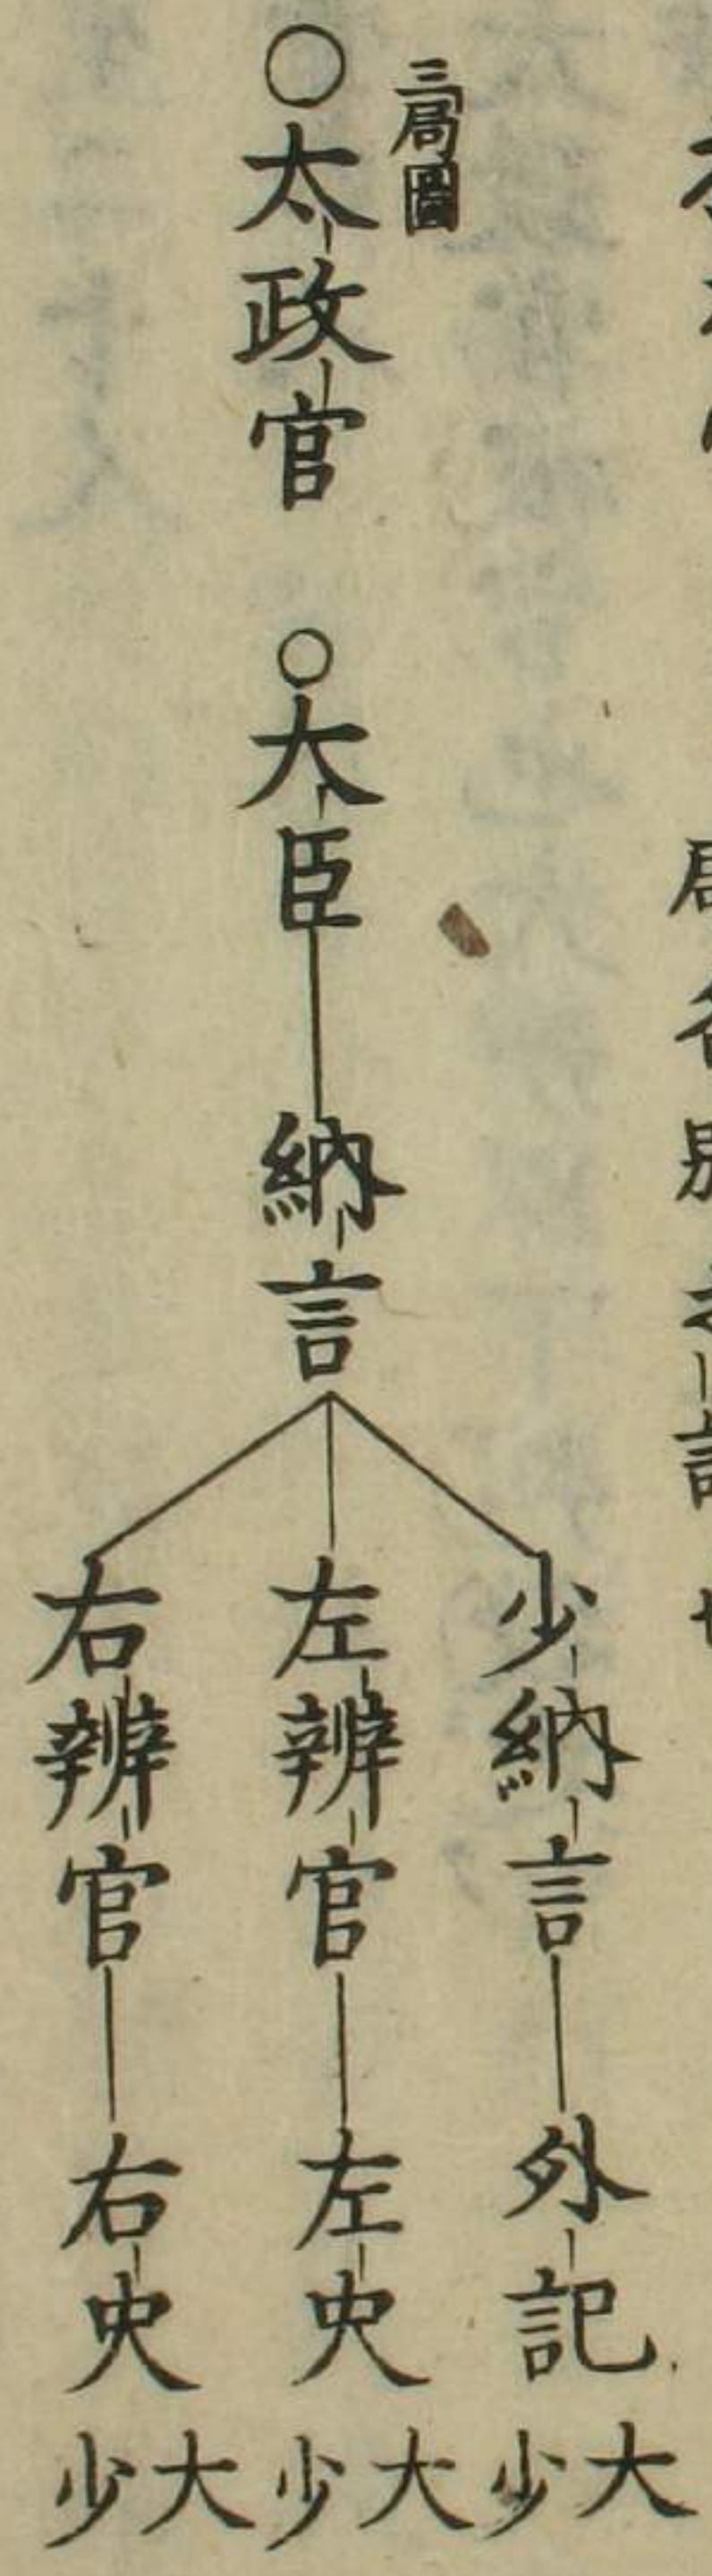 三局圖
○太政官
○大臣
納言
少納言
外記
大少
左辨官
左史
大少
右辨官
右史
大少